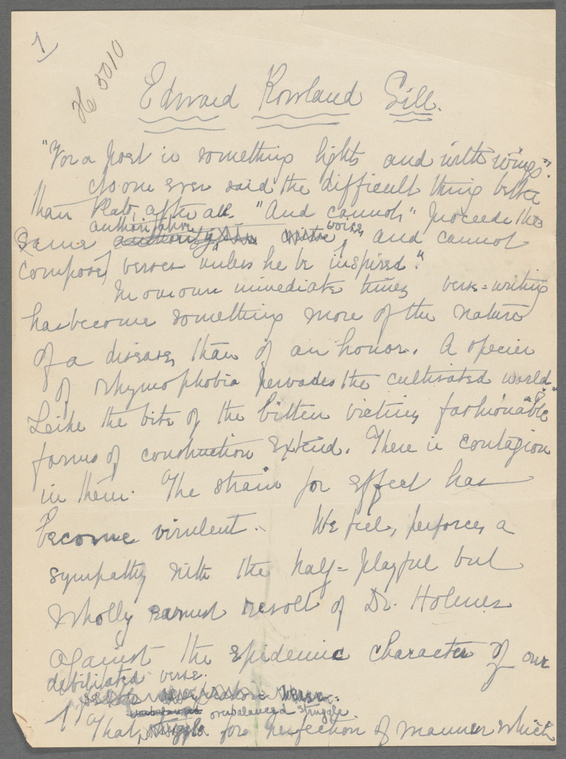 1
Edward Rowland Sill.
"For a poet is something light, and with wings."
No one ever said the difficult thing better
than Plato, after all. "And cannot," proceeds the
same authoritative voice, "and cannot
compose verses unless he be inspired."
In our own immediate times verse-writing
has become something more of the nature
of a disease, than of an honor. A species
of rhymophobia pervades the cultivated world.
Like the bite of the bitten victims, fashionable
forms of construction extend. There is contagion
in them. The strain for effect has
become virulent. We feel, perforce, a
sympathy with the half-playful but
wholly earnest revolt of Dr. Holmes
against the epidemic character of our
debilitated verse.
unbalanced struggle
That for perfection of manner which